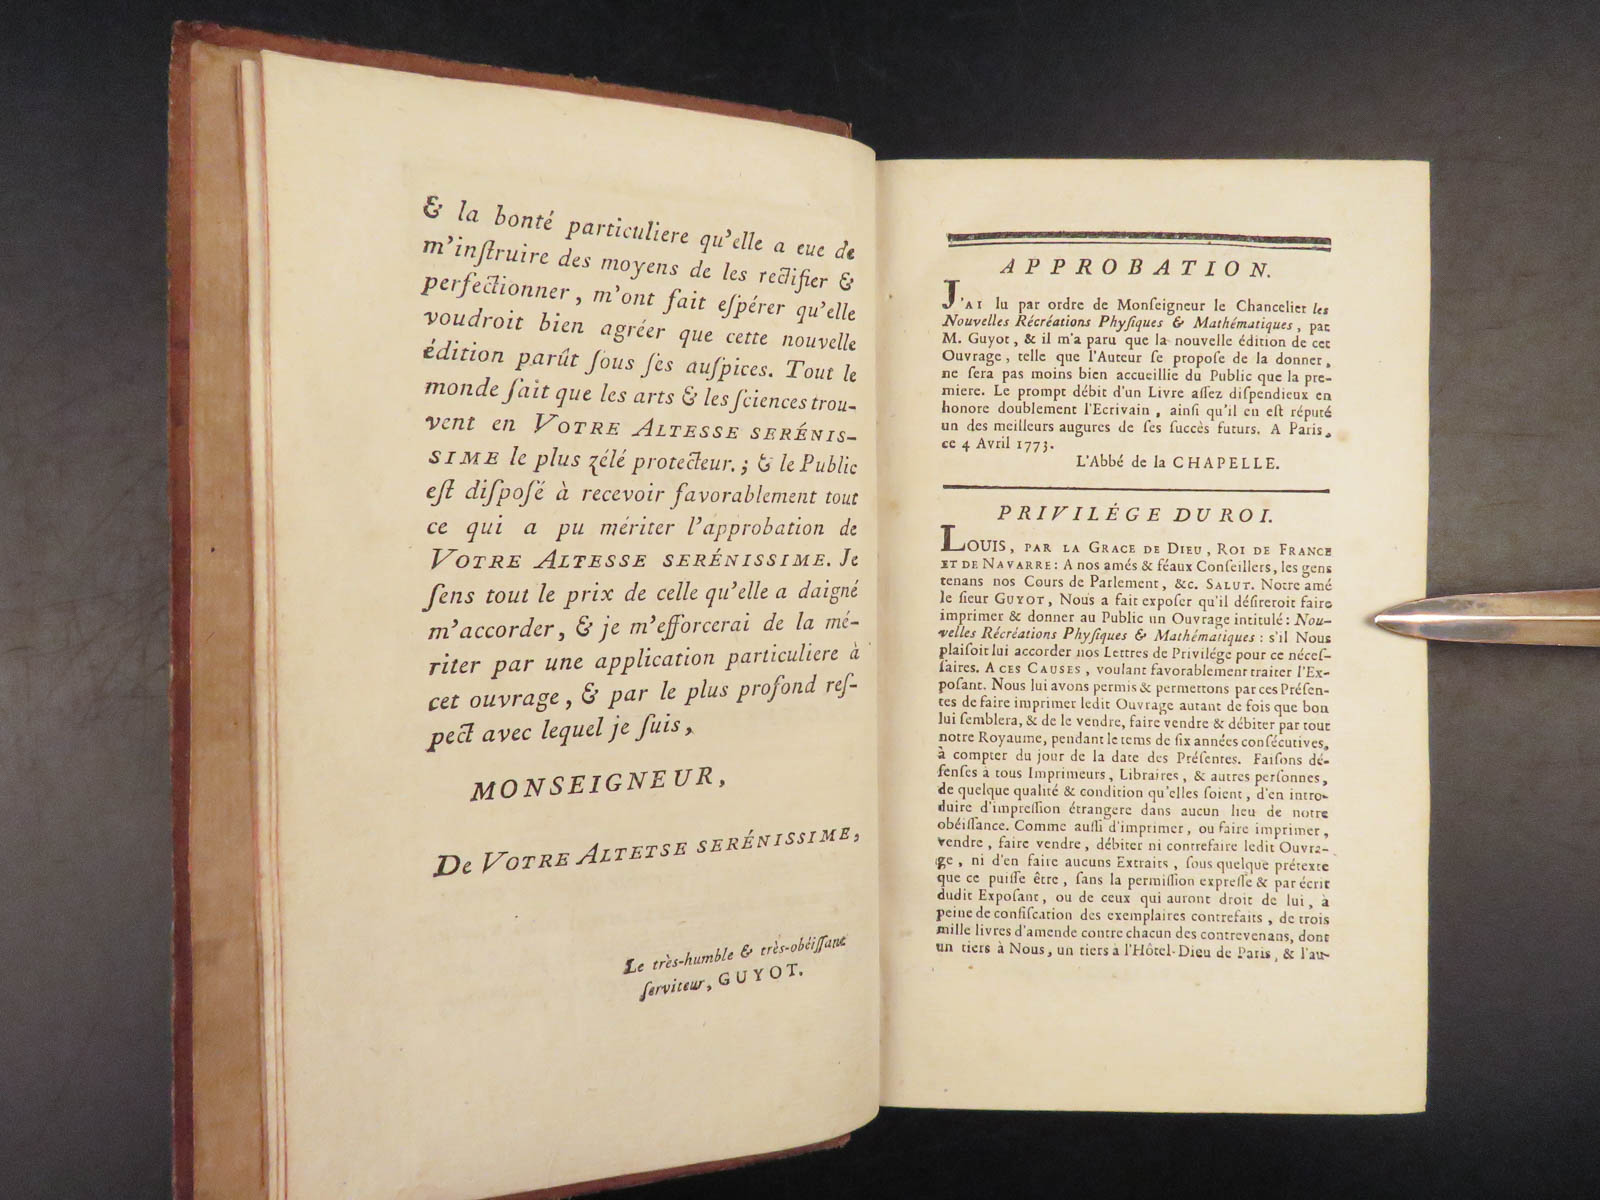 & la bonté particuliere qu'elle a eue de
m'inſtruire des moyens de les rectifier &
perfectionner, m'ont fait eſpérer qu'elle
voudroit bien agréer que cette nouvelle
édition parût ſous ſes auſpices. Tout le
monde ſait que les arts & les ſciences trou-
vent en VOTRE ALTESSE SERÉNIS-
SIME le plus zélé protecteur.; & le Public
eſt diſpoſé à recevoir favorablement tout
ce qui a pu mériter l'approbation de
VOTRE ALTESSE SERÉNISSIME. Je
ſens tout le prix de celle qu'elle a daigné
m'accorder, & je m'efforcerai de la mé-
riter par une application particuliere à
cet ouvrage, & par le plus profond reſ-
pect avec lequel je ſuis,
MONSEIGNEUR,
De VOTRE ALTETSE SERÉNISSIME,
Le très-humble & très-obéiſſant
ſerviteur, GUYOT.
APPROBATION.
J'AI lu par ordre de Monſeigneur le Chancelier les
Nouvelles Récréations Phyſiques & Mathématiques, par
M. Guyot, & il m'a paru que la nouvelle édition de cet
Ouvrage, telle que l'Auteur ſe propoſe de la donner,
ne ſera pas moins bien accueillie du Public que la pre-
miere. Le prompt débit d'un Livre aſſez diſpendieux en
honore doublement l'Ecrivain, ainſi qu'il en eſt réputé
un des meilleurs augures de ſes ſuccès futurs. A Paris,
ce 4 Avril 1773.
L'Abbé de la CHAPELLE.
PRIVILÉGE DU ROI.
LOUIS, PAR LA GRACE DE DIEU, ROI DE FRANCE
ET DE NAVARRE: A nos amés & féaux Conſeillers, les gens
tenans nos Cours de Parlement, &c. SALUT. Notre amé
le ſieur GUYOT, Nous a fait expoſer qu'il déſireroit faire
imprimer & donner au Public un Ouvrage intitulé: Nou-
velles Récréations Phyſiques & Mathématiques: s'il Nous
plaiſoit lui accorder nos Lettres de Privilége pour ce néceſ-
ſaires. A CES CAUSES, voulant favorablement traiter l'Ex-
poſant. Nous lui avons permis & permettons par ces Préſen-
tes de faire imprimer ledit Ouvrage autant de fois que bon
lui ſemblera, & de le vendre, faire vendre & débiter par tout
notre Royaume, pendant le tems de ſix années conſécutives,
à compter du jour de la date des Préſentes. Faiſons dé-
fenſes à tous Imprimeurs, Libraires, & autres perſonnes,
de quelque qualité & condition qu'elles ſoient, d'en intro-
duire d'impreſſion étrangere dans aucun lieu de notre
obéiſſance. Comme auſſi d'imprimer, ou faire imprimer,
vendre, faire vendre, débiter ni contrefaire ledit Ouvra-
ge, ni d'en faire aucuns Extraits, ſous quelque prétexte
que ce puiſſe être, ſans la permiſſion expreſſe & par écrit
dudit Expoſant, ou de ceux qui auront droit de lui, à
peine de confiſcation des exemplaires contrefaits, de trois
mille livres d'amende contre chacun des contrevenans, dont
un tiers à Nous, un tiers à l'Hôtel-Dieu de Paris, & l'au-